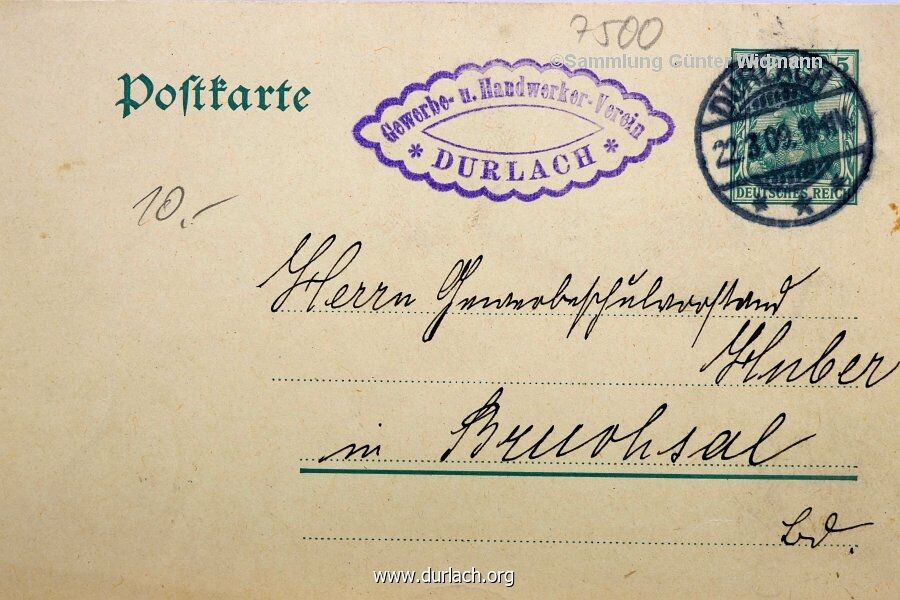 7500
©Sammlung Günter Widmann
Postkarte
Gewerbe- u. Handwerker-Verein
* DURLACH *
DURLACH
22.3.09.
5
DEUTSCHES REICH
10,-
Herrn Gewerbeschulvorstand
Huber
in Bruchsal
Bd.
www.durlach.org